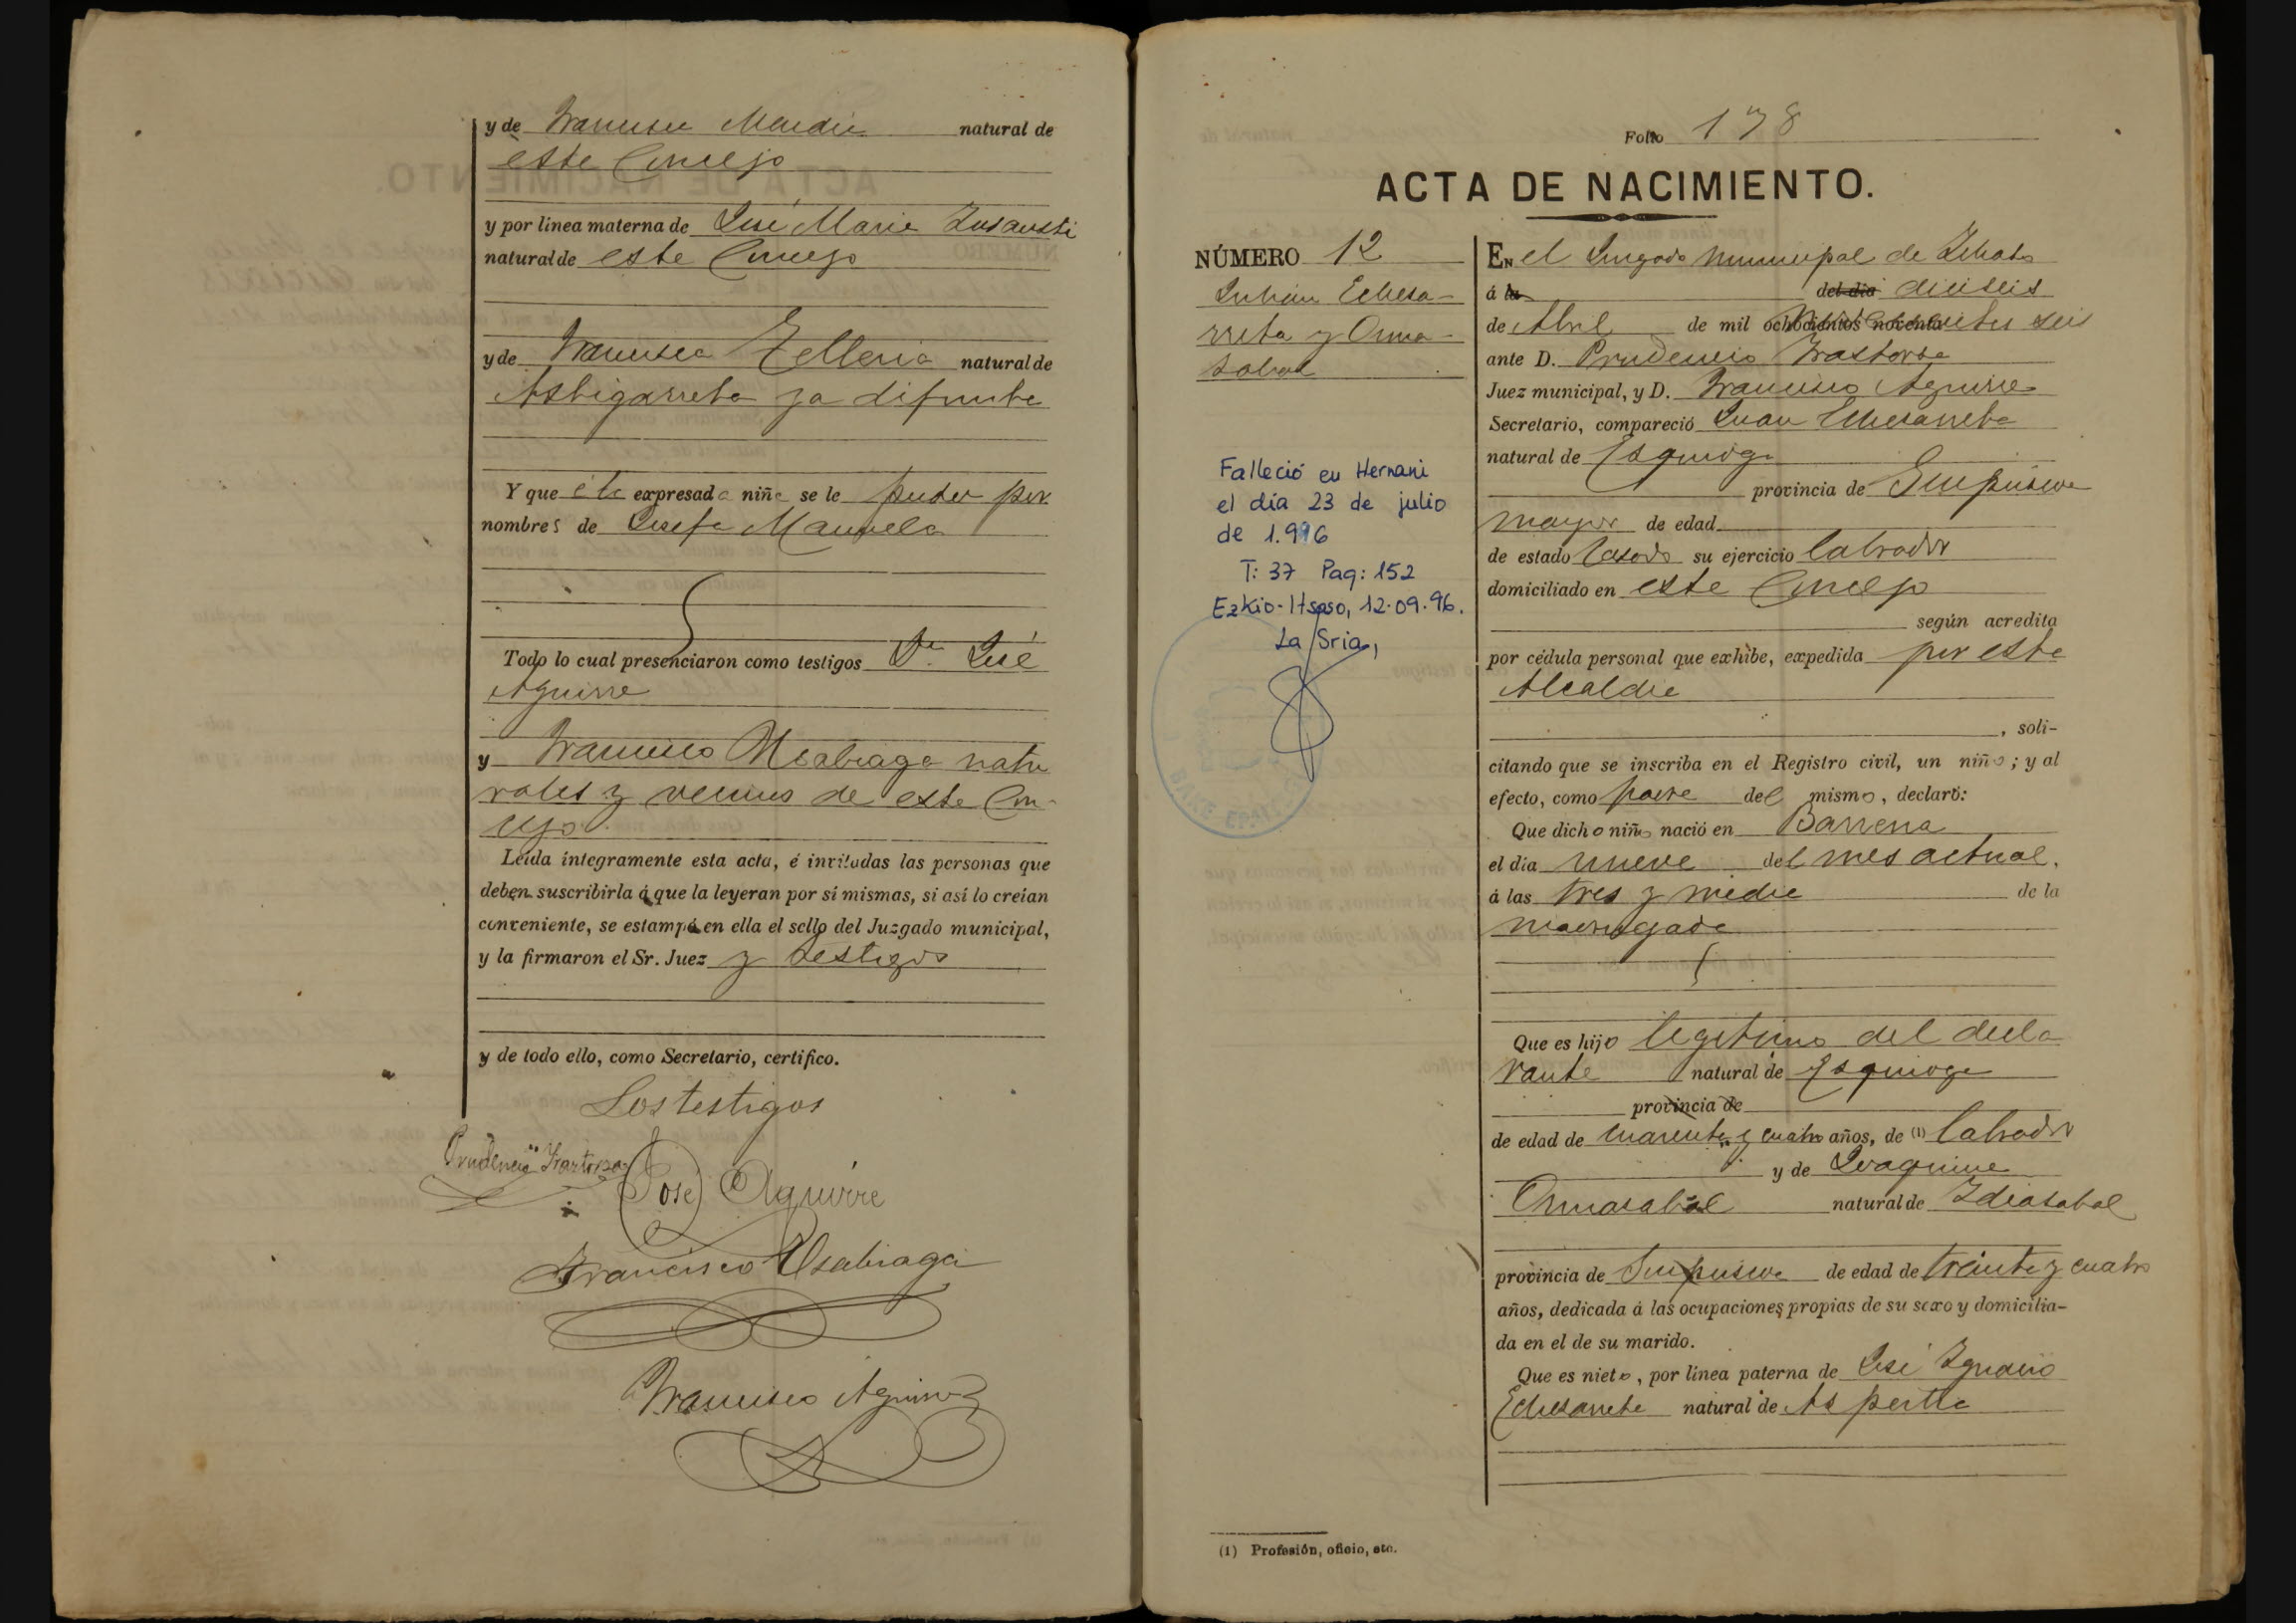 y de Francisca Mendia natural de
este Concejo
y por linea materna de José Maria Insausti
natural de este Concejo
y de Francisca Telleria natural de
Astigarreta ya difunta
Y que á la expresada niña se le puden por
nombres de Josefa Manuela
Todo lo cual presenciaron como testigos Dn. José
Aguirre
y Francisco Usabiaga natu
rales y vecinos de este Con-
cejo
Leida integramente esta acta, é invitadas las personas que
deben suscribirla á que la leyeran por sí mismas, si así lo creían
conveniente, se estampó en ella el sello del Juzgado municipal,
y la firmaron el Sr. Juez y testigos
y de todo ello, como Secretario, certifico.
Los testigos
Prudencio Irastorza
José Aguirre
Francisco Usabiaga
Francisco Aguirre
Folio 178
ACTA DE NACIMIENTO.
NÚMERO 12
Julián Echeza-
rreta y Orma-
zabal
Falleció en Hernani
el día 23 de julio
de 1.996
T: 37 Pag: 152
Ezkio-Itsaso, 12.09.96.
La Sria,
BAKE EPAI
EN el Juzgado municipal de Ichaso
á la del dia dieiseis
de Abril de mil ochocientos noventa novecientos seis
ante D. Prudencio Irastorza
Juez municipal, y D. Francisco Aguirre
Secretario, compareció Juan Echezarreta
natural de Ezquioga
provincia de Guipúzcoa
mayor de edad
de estado Casado su ejercicio labrador
domiciliado en este Concejo
según acredita
por cédula personal que exhibe, expedida por esta
Alcaldia
, soli-
citando que se inscriba en el Registro civil, un niño; y al
efecto, como padre del mismo, declaró:
Que dicho niño nació en Barrena
el dia nueve del mes actual,
á las tres y media de la
madrugada
Que es hijo legitimo del decla
rante natural de Ezquioga
provincia de
de edad de cuarenta y cuatro años, de (1) labrador
y de Joaquina
Ormazabal natural de Idiazabal
provincia de Guipuzcoa de edad de treinta y cuatro
años, dedicada á las ocupaciones propias de su sexo y domicilia-
da en el de su marido.
Que es nieto, por linea paterna de José Ignacio
Echezarreta natural de Azpeitia
(1) Profesión, oficio, etc.